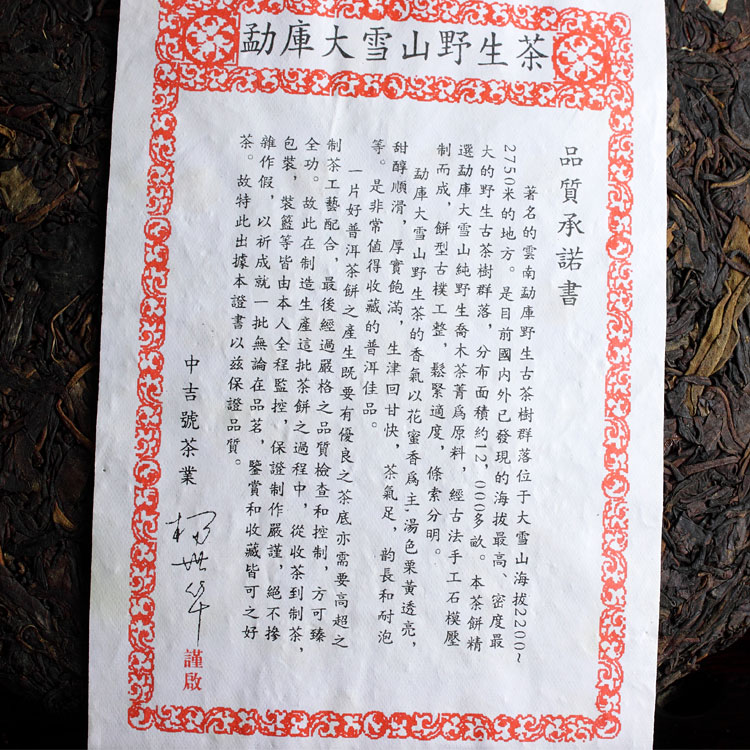 勐庫大雪山野生茶
品質承諾書
著名的雲南勐庫野生古茶樹群落位于大雪山海拔2200~
2750米的地方。是目前國内外已發現的海拔最高、密度最
大的野生古茶樹群落，分布面積約12，000多畝。本茶餅精
選勐庫大雪山純野生喬木茶菁爲原料，經古法手工石模壓
制而成，餅型古樸工整，鬆緊適度，條索分明。
勐庫大雪山野生茶的香氣以花蜜香爲主，湯色栗黃透亮，
甜醇順滑，厚實飽滿，生津回甘快，茶氣足，韵長和耐泡
等。是非常值得收藏的普洱佳品。
一片好普洱茶餅之產生既要有優良之茶底亦需要高超之
制茶工藝配合，最後經過嚴格之品質檢查和控制，方可臻
全功。故此在制造生產這批茶餅之過程中，從收茶到制茶，
包裝，裝籃等皆由本人全程監控，保證制作嚴謹，絕不摻
雜作假，以祈成就一批無論在品茗，鑒賞和收藏皆可之好
茶。故特此出據本證書以兹保證品質。
中吉號茶業
謹啟